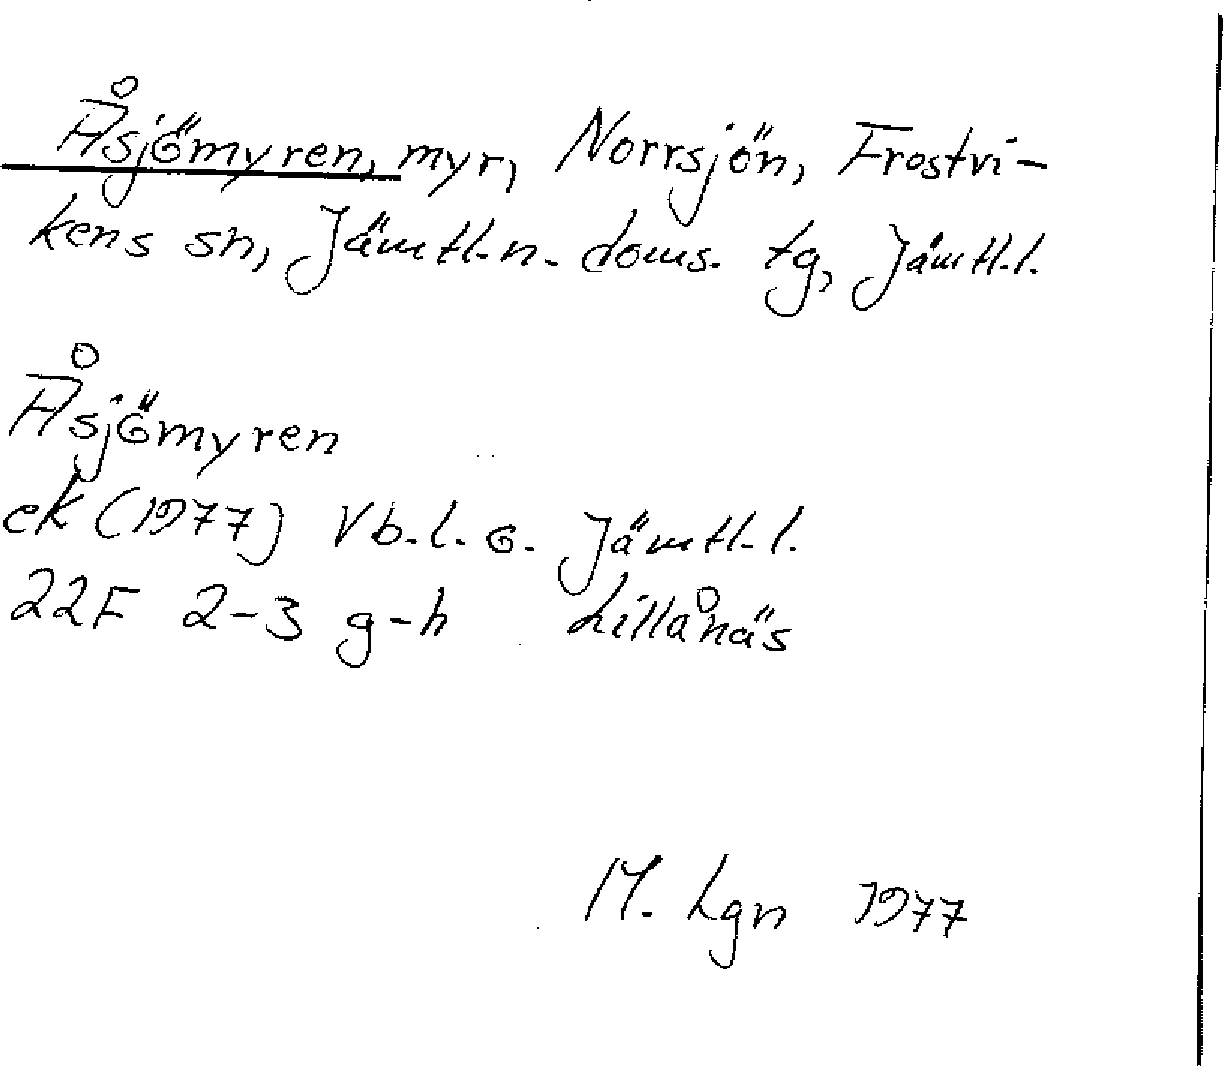 Åsjömyren, myr, Norrsjön, Frostvi-
kens sn, Jämtl.n. doms. tg, Jämtl.l.
Åsjömyren
ek (1977) Vb.l. o. Jämtl.l.
22F 2-3 g-h Lillånäs
M. Lgn 1977